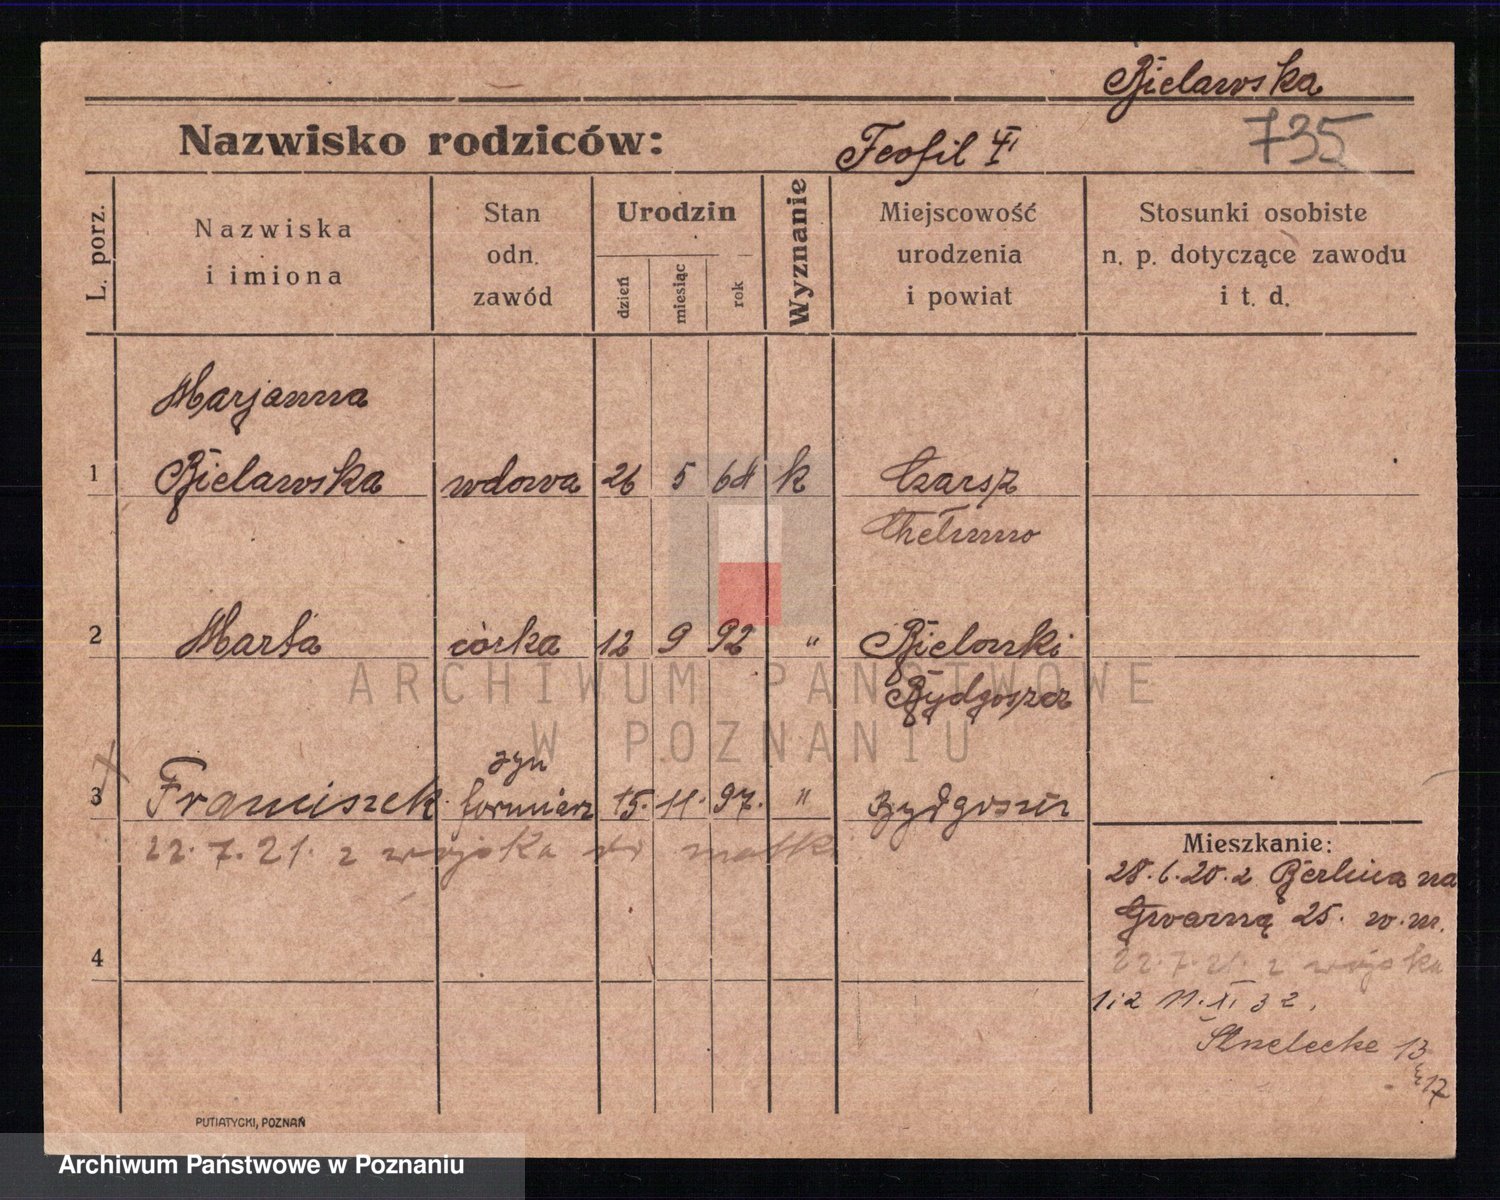 Bielawska
Nazwisko rodziców: Teofil
735
L. porz.
Nazwiska
i imiona
Stan
odn.
zawód
Urodzin
dzień
miesiąc
rok
Wyznanie
Miejscowość
urodzenia
i powiat
Stosunki osobiste
n. p. dotyczące zawodu
i t. d.
Marjanna
1 Bielawska wdowa 26 5 64 k Czarsz
Chełmno
2 Marta córka 12 9 92 " Bielawki
Bydgoszcz
syn
3 Franciszek formierz 15. 11. 97. " Bydgoszcz
22.7.21. z wojska do matki
Mieszkanie:
28.6.20. z Berlina na
Gwarną 25. w.m.
22.7.21. z wojska
4
1i2 11.XI 32.
Strzelecka 13
17
ARCHIWUM PAŃSTWOWE
W POZNANIU
PUTIATYCKI, POZNAŃ
Archiwum Państwowe w Poznaniu